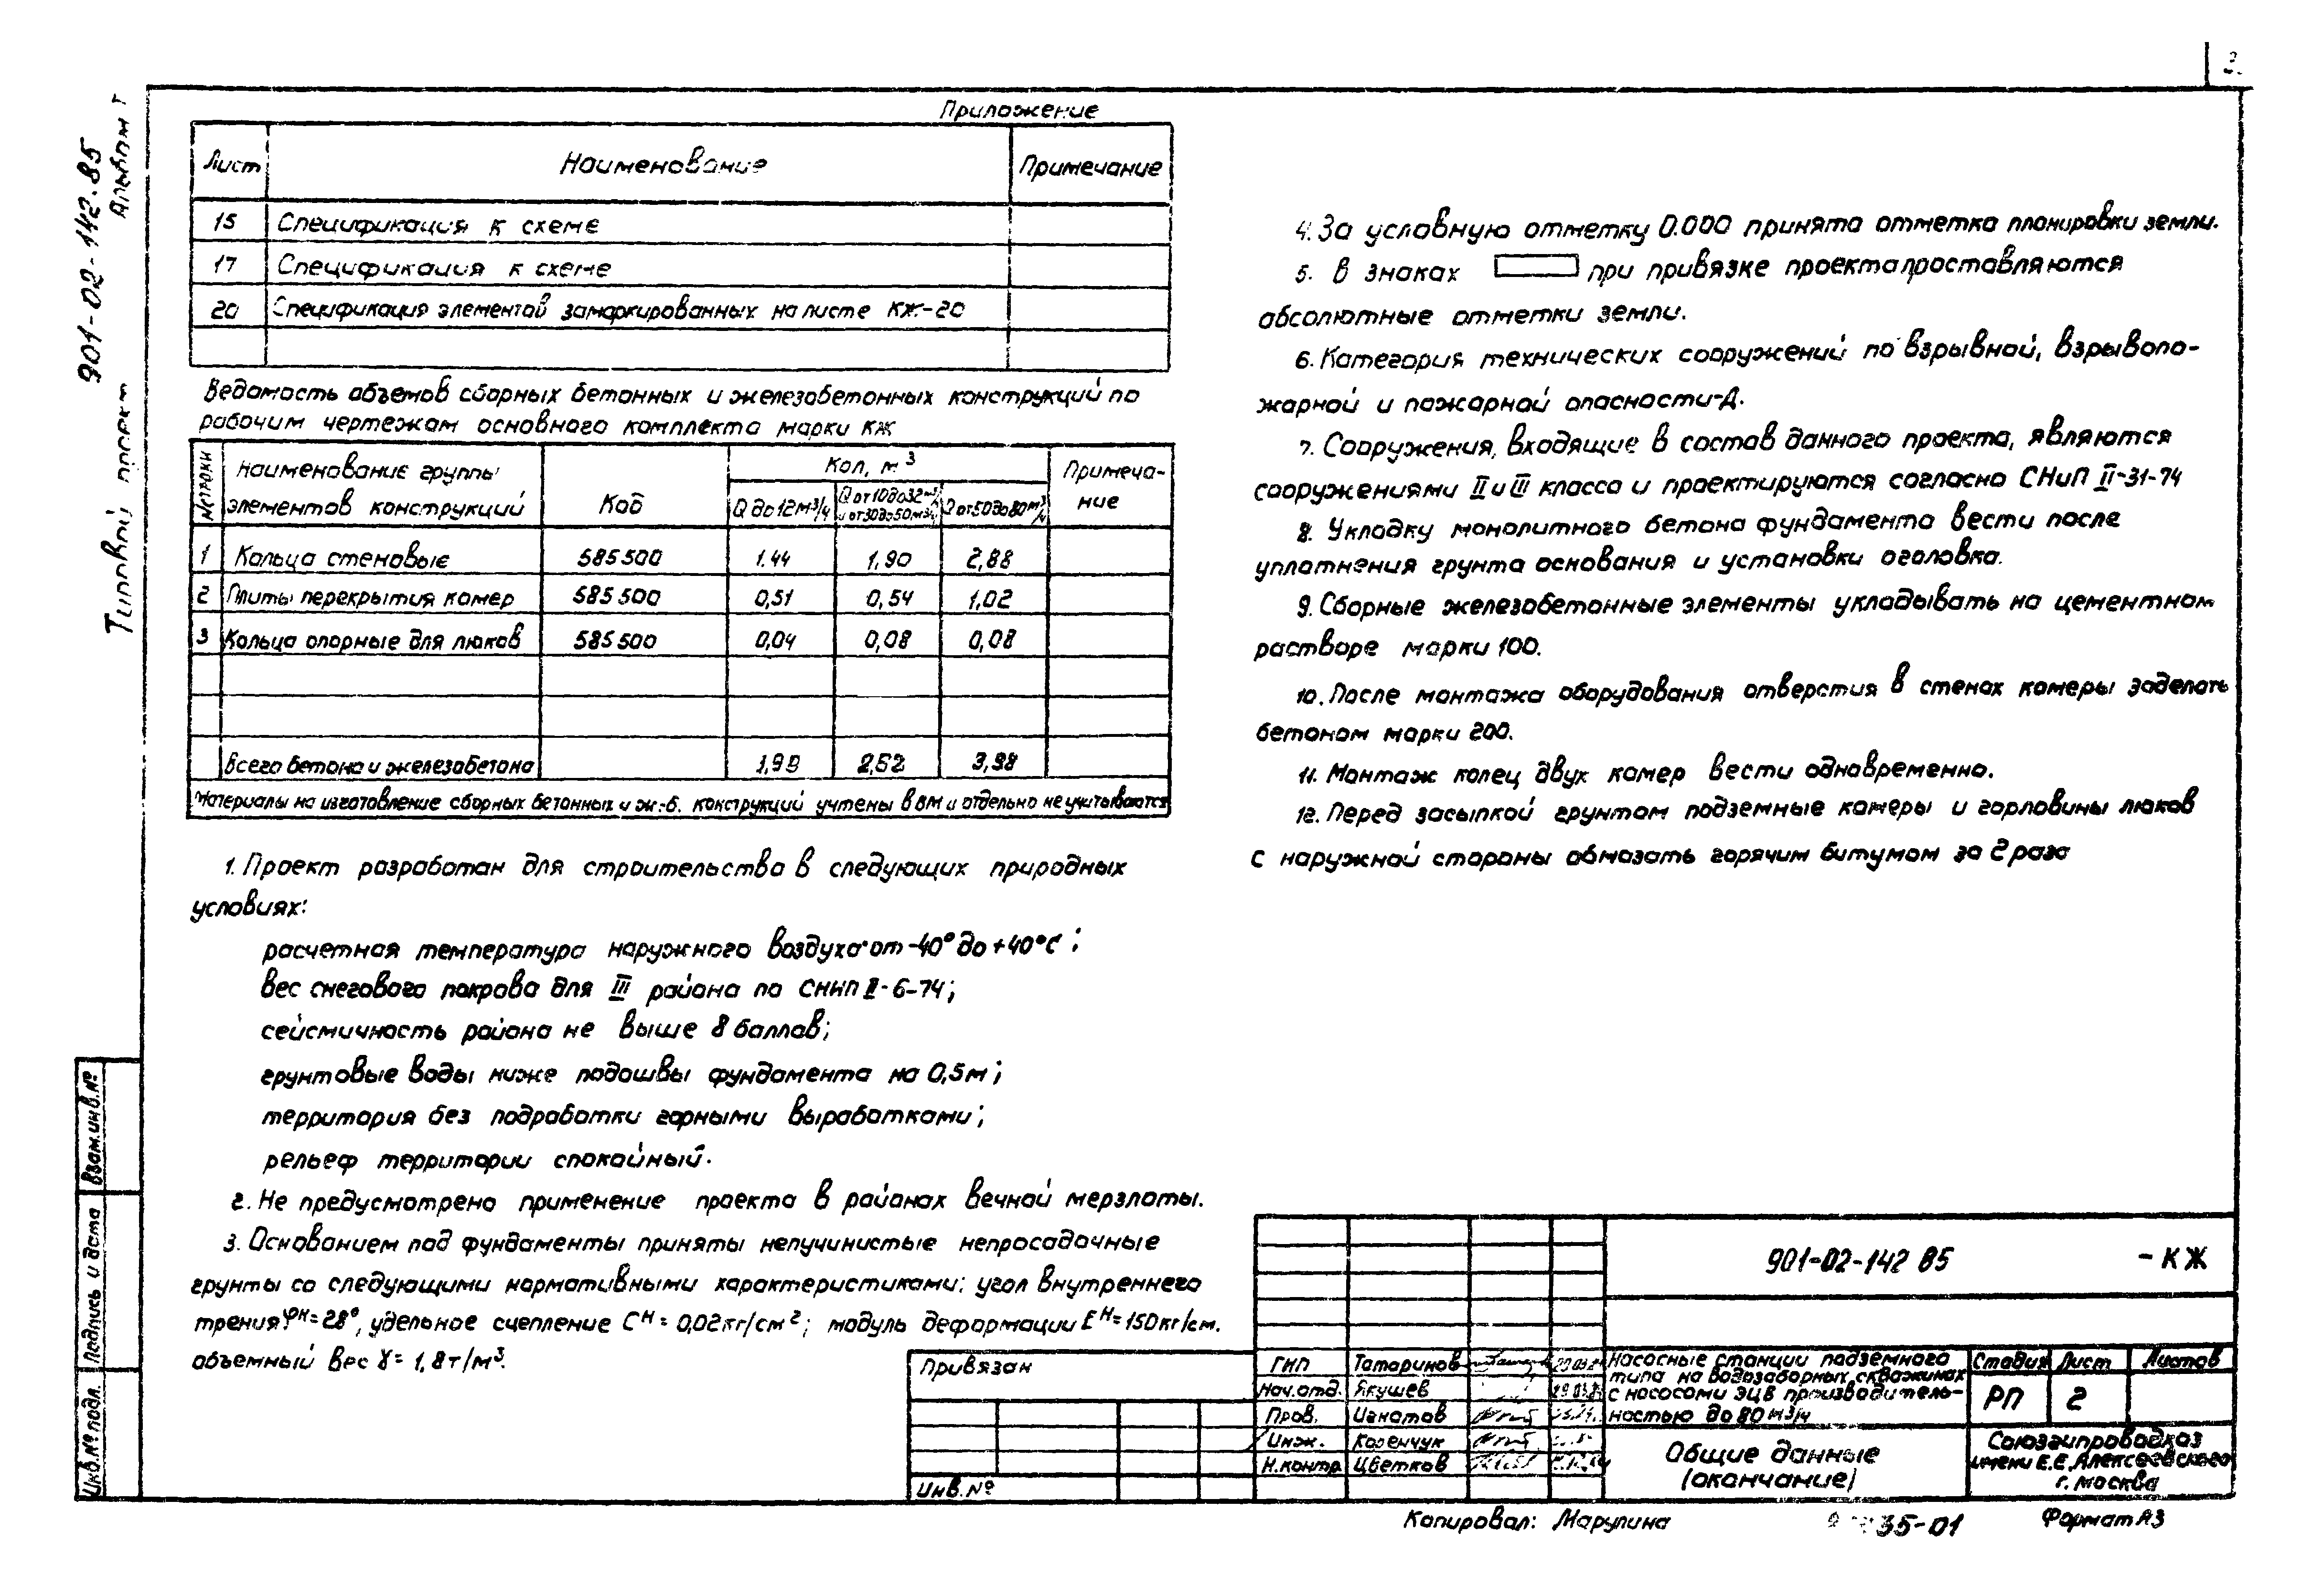 901-02-142.85
Альбом I
Типовой проект
Взам.инв.№
Подпись и дата
Инв.№ подл.
Приложение
Лист Наименование Примечание
15 Спецификация к схеме
17 Спецификация к схеме
20 Спецификация элементов замаркированных на листе КЖ-20
Ведомость объемов сборных бетонных и железобетонных конструкций по
рабочим чертежам основного комплекта марки КЖ
№ строки Наименование группы элементов конструкций Код Кол, м³ Примеча-
ние
Q до 12 м³/ч Q от 10 до 32 м³/ч и от 30 до 50 м³/ч Q от 50 до 80 м³/ч
1 Кольца стеновые 585500 1.44 1,90 2,88
2 Плиты перекрытия камер 585500 0,51 0,54 1,02
3 Кольца опорные для люков 585500 0,04 0,08 0,08
Всего бетона и железобетона 1,99 2,52 3,98
Материалы на изготовление сборных бетонных и ж.-б. конструкций учтены в ВМ и отдельно не учитываются
1. Проект разработан для строительства в следующих природных
условиях:
расчетная температура наружного воздуха от -40° до +40°С;
вес снегового покрова для III района по СНиП II-6-74;
сейсмичность района не выше 8 баллов;
грунтовые воды ниже подошвы фундамента на 0,5м;
территория без подработки горными выработками;
рельеф территории спокойный.
2. Не предусмотрено применение проекта в районах вечной мерзлоты.
3. Основанием под фундаменты приняты непучинистые непросадочные
грунты со следующими нормативными характеристиками: угол внутреннего
трения φн=28°, удельное сцепление Сн=0,02кг/см²; модуль деформации Ен=150кг/см.
объемный вес γ=1,8т/м³.
4. За условную отметку 0.000 принята отметка планировки земли.
5. В знаках при привязке проекта проставляются
абсолютные отметки земли.
6. Категория технических сооружений по взрывной, взрывопо-
жарной и пожарной опасности-Д.
7. Сооружения, входящие в состав данного проекта, являются
сооружениями II и III класса и проектируются согласно СНиП II-31-74
8. Укладку монолитного бетона фундамента вести после
уплотнения грунта основания и установки оголовка.
9. Сборные железобетонные элементы укладывать на цементном
растворе марки 100.
10. После монтажа оборудования отверстия в стенах камеры заделать
бетоном марки 200.
11. Монтаж колец двух камер вести одновременно.
12. Перед засыпкой грунтом подземные камеры и горловины люков
с наружной стороны обмазать горячим битумом за 2 раза
Привязан
Инв.№
901-02-142 85 -КЖ
ГИП Татаринов
Нач.отд. Якушев
Пров. Игнатов
Инж. Козенчук
Н.контр Цветков
Насосные станции подземного
типа на водозаборных скважинах
с насосами ЭЦВ производитель-
ностью до 80 м³/ч
Стадия Лист Листов
РП 2
Общие данные
(окончание)
Союзгипроводхоз
имени Е.Е.Алексеевского
г. Москва
Копировал: Марулина
35-01
Формат А3